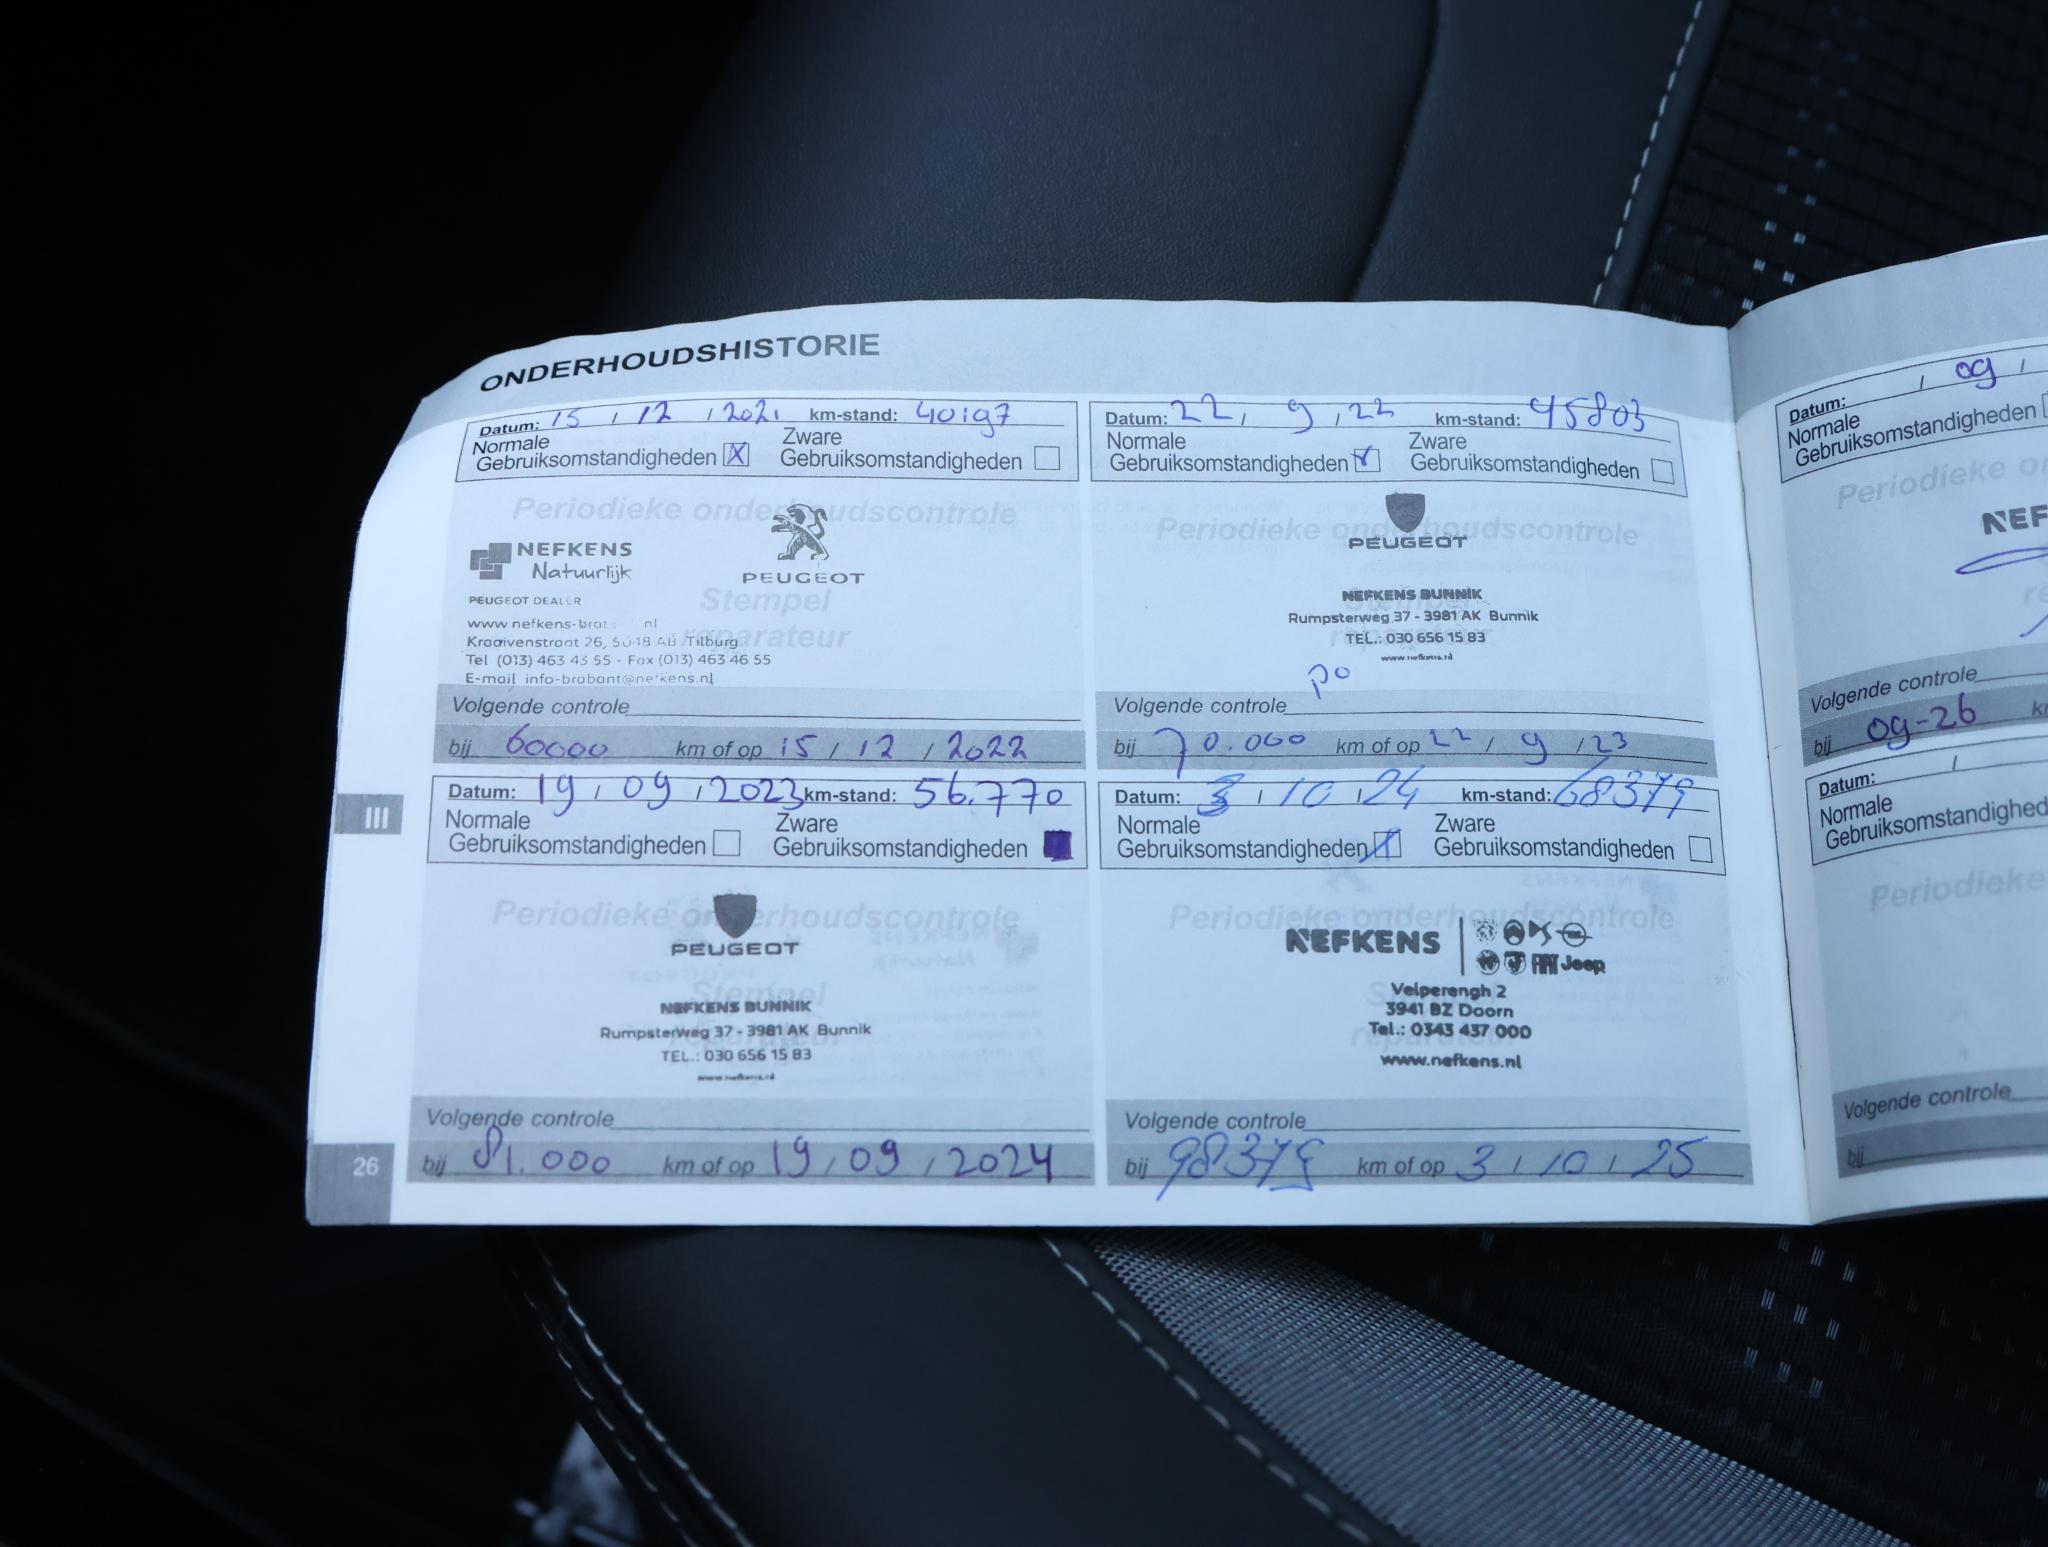 ONDERHOUDSHISTORIE
Datum: 15 / 12 / 2021 km-stand: 40197
Normale Gebruiksomstandigheden X Zware Gebruiksomstandigheden
Periodieke onderhoudscontrole
NEFKENS
Natuurlijk
PEUGEOT
PEUGEOT DEALER
Stempel reparateur
www.nefkens-brab nl
Kraaivenstraat 26, 5048 AB Tilburg
Tel (013) 463 43 55 - Fax (013) 463 46 55
E-mail info-brabant@nefkens.nl
Volgende controle
bij 60000 km of op 15 / 12 / 2022
Datum: 22 / 9 / 22 km-stand: 45803
Normale Gebruiksomstandigheden Zware Gebruiksomstandigheden
Periodieke onderhoudscontrole
PEUGEOT
NEFKENS BUNNIK
Stempel reparateur
Rumpsterweg 37 - 3981 AK Bunnik
TEL.: 030 656 15 83
www.nefkens.nl
po
Volgende controle
bij 70.000 km of op 22 / 9 / 23
III
Datum: 19 / 09 / 2023 km-stand: 56.770
Normale Gebruiksomstandigheden Zware Gebruiksomstandigheden
Periodieke onderhoudscontrole
PEUGEOT
Stempel reparateur
NEFKENS BUNNIK
Rumpsterweg 37 - 3981 AK Bunnik
TEL.: 030 656 15 83
www.nefkens.nl
Volgende controle
bij 81.000 km of op 19 / 09 / 2024
Datum: 3 / 10 / 24 km-stand: 68379
Normale Gebruiksomstandigheden Zware Gebruiksomstandigheden
Periodieke onderhoudscontrole
NEFKENS
FIAT Jeep
Stempel reparateur
Velperengh 2
3941 BZ Doorn
Tel.: 0343 437 000
www.nefkens.nl
Volgende controle
bij 98379 km of op 3 / 10 / 25
26
Datum: / 09 /
Normale
Gebruiksomstandigheden
Periodieke
NEF
Volgende controle
bij 09-26
Datum: /
Normale
Periodieke
Volgende controle
bij